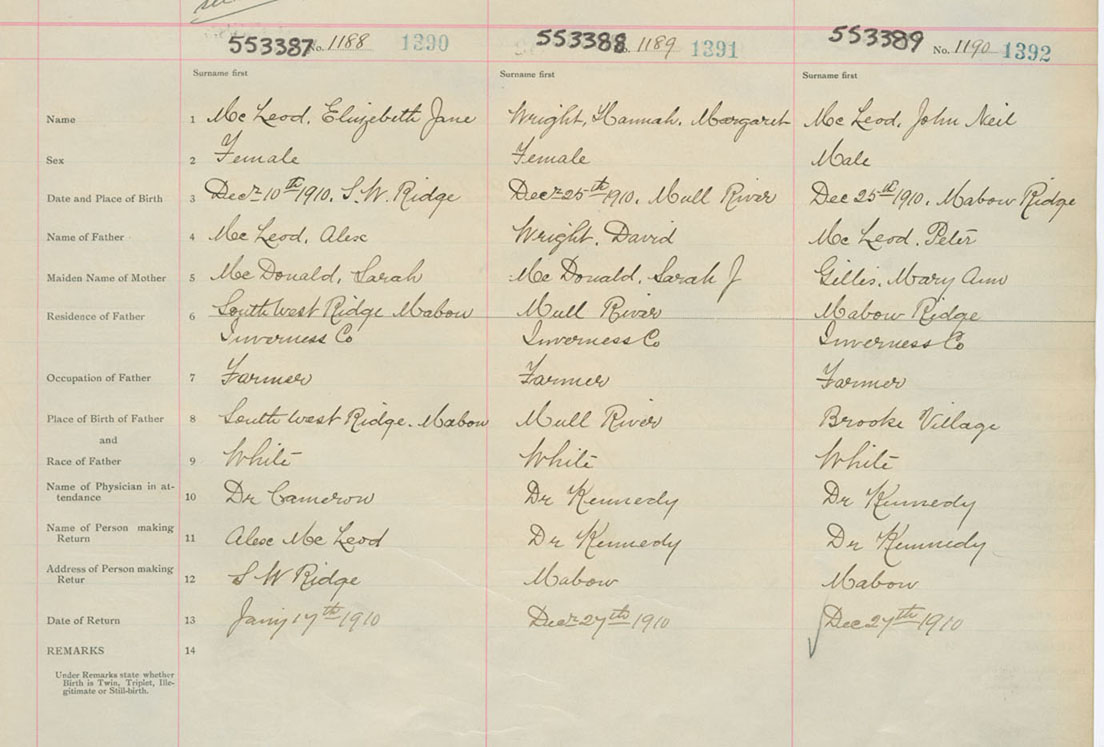 553387 No. 1188 1390 553388 No. 1189 1391 553389 No. 1190 1392
Surname first Surname first Surname first
Name 1 Mc Leod, Elizebeth Jane Wright, Hannah, Margaret Mc Leod, John Neil
Sex 2 Female Female Male
Date and Place of Birth 3 Decr 10th 1910, S.W. Ridge Decr 25th 1910, Mull River Dec 25th 1910, Mabou Ridge
Name of Father 4 Mc Leod, Alex Wright, David Mc Leod, Peter
Maiden Name of Mother 5 Mc Donald, Sarah Mc Donald, Sarah J Gillis, Mary Ann
Residence of Father 6 South West Ridge Mabou Mull River Mabou Ridge
Inverness Co Inverness Co Inverness Co
Occupation of Father 7 Farmer Farmer Farmer
Place of Birth of Father 8 South West Ridge, Mabou Mull River Brooke Village
and
Race of Father 9 White White White
Name of Physician in at-
tendance 10 Dr Cameron Dr Kennedy Dr Kennedy
Name of Person making
Return 11 Alex Mc Leod Dr Kennedy Dr Kennedy
Address of Person making
Retur 12 S W Ridge Mabou Mabou
Date of Return 13 Jany 17th 1910 Decr 27th 1910 Dec 27th 1910
REMARKS 14
Under Remarks state whether
Birth is Twin, Triplet, Ille-
gitimate or Still-birth.